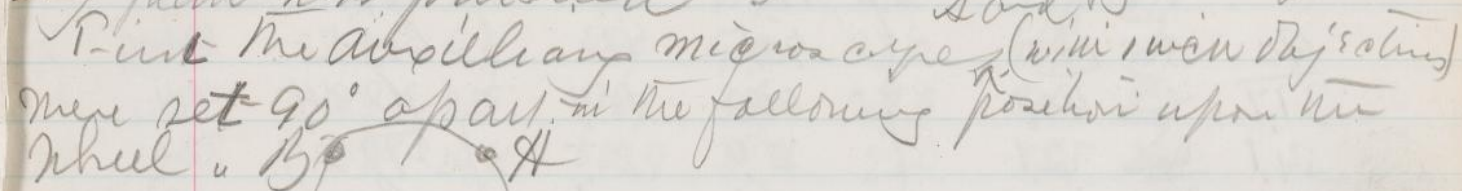 First the auxilliary microscopes (with 1 inch objectives)
were set 90° apart in the following position upon the
wheel " B A